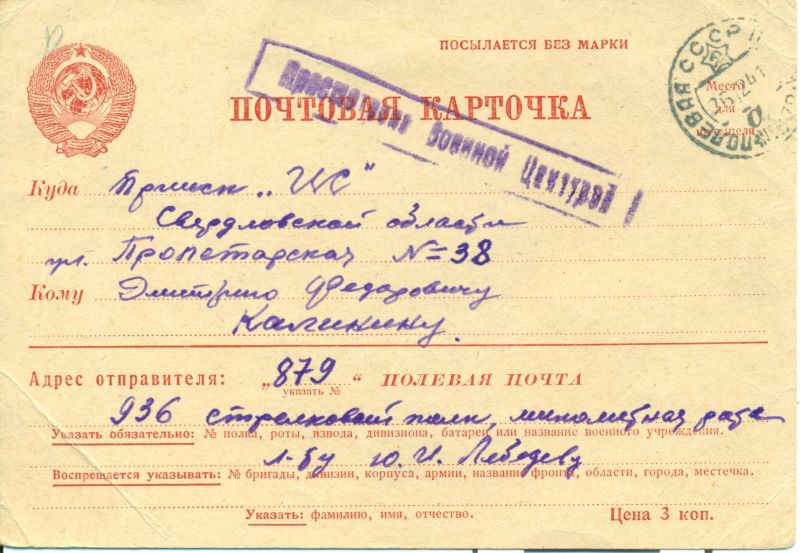 ПОСЫЛАЕТСЯ БЕЗ МАРКИ
Место
для
ПОЧТОВАЯ КАРТОЧКА
Просмотрено Военной Цензурой
СССР
ПОЛЕВАЯ
Куда Прииск „ИС“
Свердловской области
ул. Пролетарская № 38
Кому Дмитрию Федоровичу
Каликину.
Адрес отправителя: „879“ ПОЛЕВАЯ ПОЧТА
указать №
936 стрелковый полк, минометная рота
Указать обязательно: № полка, роты, взвода, дивизиона, батареи или название военного учреждения.
Л-ту Ю. И. Лебедеву
Воспрещается указывать: № бригады, дивизии, корпуса, армии, название фронта, области, города, местечка.
Указать: фамилию, имя, отчество.
Цена 3 коп.